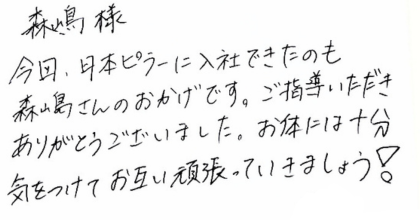 森嶋様
今回、日本ピラーに入社できたのも
森嶋さんのおかげです。ご指導いただき
ありがとうございました。お体には十分
気をつけてお互い頑張っていきましょう!